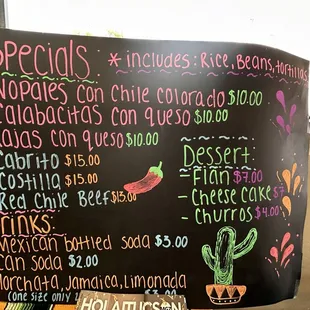 Specials: * includes: Rice, Beans, tortillas
Nopales con Chile colorado $10.00
Calabacitas con queso $10.00
Rajas con queso $10.00
Cabrito $15.00
Costilla $15.00
Red Chile Beef $13.00
Dessert:
- Flan $7.00
- Cheese cake $7
- Churros $4.00
Drinks:
Mexican bottled soda $3.00
Can soda $2.00
Horchata, Jamaica, Limonada
(one size only $3.00
HOLA TUCSON